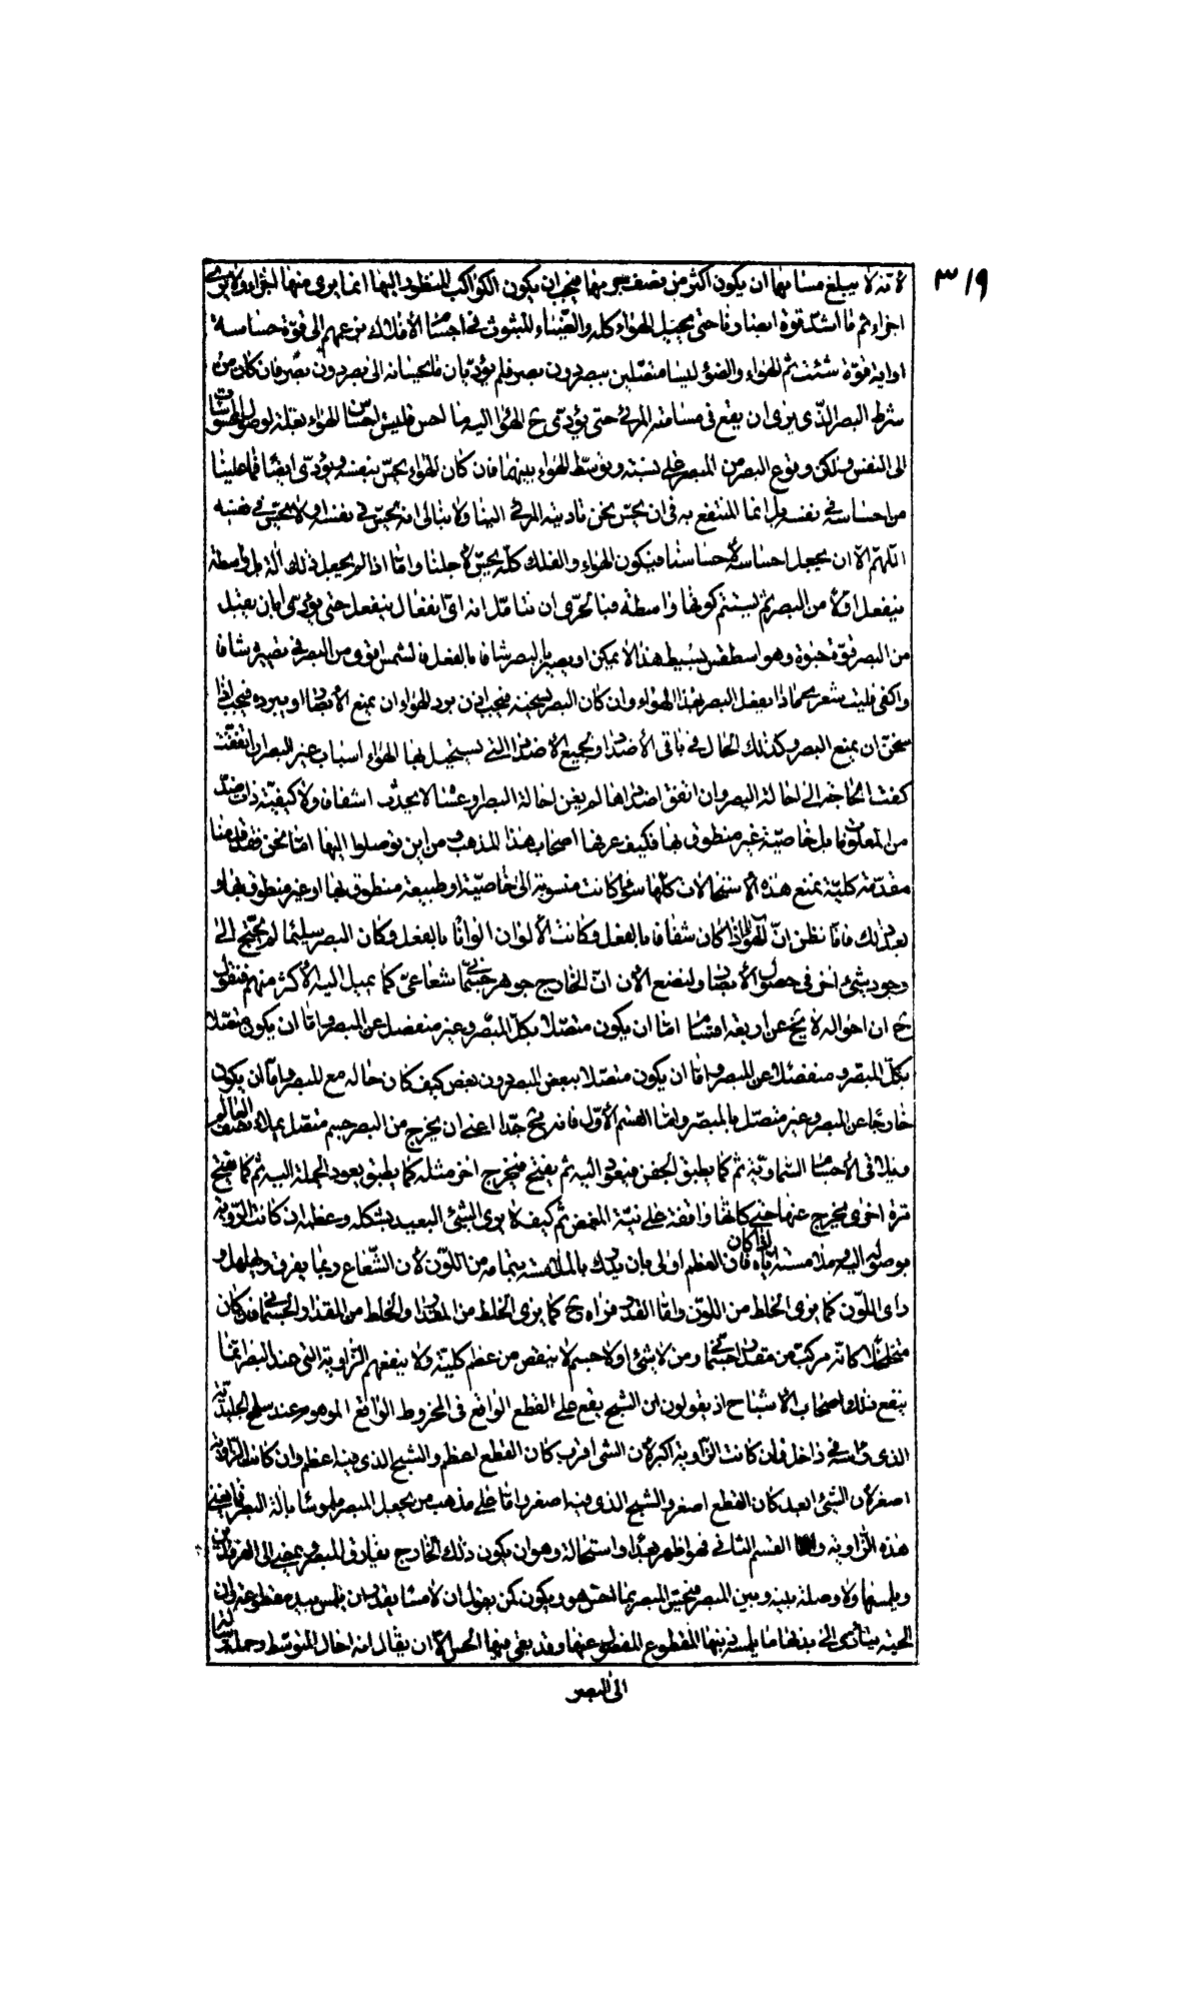 ٣١٩
لأنه لا يبلغ مسامها ان يكون اكثر من نصف جرمها فيجب ان يكون الكواكب المنظور اليها انما يرى منها اجزاء ولا يرى
اجزاء ثم ما اشد قوة ابصارنا حتى يحيل الهواء كله والضياء المبثوث في اجسام الأفلاك بزعمهم الى قوة حساسة
او اية قوة شئت ثم الهواء والضوء ليسا متصلين ببصر دون بصر فلم يؤديان ما يحسانه الى بصر دون بصر فان كان من
شرط البصر الذي يرى ان يقع في مسامتة المرئي حتى يؤدي ح الهواء اليه ما احس فليس احساس الهواء بعلة لوصول المحسوسات
الى النفس ولكن وقوع البصر من المبصر على نسبته وتوسط الهواء بينهما فان كان الهواء يحس بنفسه ويؤدي ايضا فما علينا
من احساسه في نفسه بل انما المنتفع به في ان يحس نحن تأديته المرئي الينا ولا نبالي انه يحس في نفسه او لا يحس في نفسه
اللهم الا ان يجعل احساسه لأحساسنا فيكون الهواء والفلك كله يحس لأجلنا واما اذا لم يجعل ذلك آلة بل واسطة
ينفعل اولا من البصر ثم يستتم كونها واسطة فبالحري ان نتأمل انه اي انفعال ينفعل حتى يؤدي ابان يقبل
من البصر قوة حيوة وهو اسطقس بسيط هذا لا يمكن او يصير بالبصر شافا بالفعل فالشمس اقوى من البصر في تصييره شافا
واكفى فليت شعري ماذا يفعل البصر بهذا الهواء وان كان البصر يسخنه فيجب اذن برد الهواء ان يمنع الأبصار او يبرده فيجب اذا
سخن ان يمنع البصر وكذلك الحال في باقي الأضداد وجميع الأضداد التي يستحيل بها الهواء اسباب غير البصر ان اتفقت
كفت الحاجة الى احالة البصر وان اتفق اضدادها لم يغن احالة البصر وعسى الا يحدث اشفافا ولا كيفية ذات ضد
من المعلومات بل خاصية غير منطوق بها فكيف عرفها اصحاب هذا المذهب ومن اين توصلوا اليها اما نحن فقد قدمنا
مقدمة كلية يمنع هذه الاستحالات كلها سواء كانت منسوبة الى خاصية او طبيعة منطوق بها او غير منطوق بها و
بعد ذلك فانا نظن ان الهواء اذا كان شفافا بالفعل وكانت الألوان الوانا بالفعل وكان البصر سليما لم يحتج الى
وجود شيء اخر في حصول الأبصار ولنضع الآن ان الخارج جوهر جسماني شعاعي كما يميل اليه الأكثر منهم فنقول
ح ان احواله لا يخ عن اربعة اقسام اما ان يكون متصلا بكل المبصر وغير منفصل عن المبصر واما ان يكون متصلا
بكل المبصر ومنفصلا عن المبصر واما ان يكون متصلا ببعض المبصر دون بعض كيف كان حاله مع المبصر واما ان يكون
خارجا عن المبصر وغير متصل بالمبصر واما القسم الأول فانه مح جدا اعني ان يخرج من البصر جسم متصل يملأ نصف العالم
ويلاقي الأجسام السماوية ثم كما يطبق الجفن فيعود اليه ثم يفتح فيخرج اخر مثله كما يطبق يعود الجملة اليه ثم كما يفتح
مرة اخرى يخرج عنها حتى كأنها واقفة على نية المغمض ثم كيف لا يرى الشيء البعيد بشكله وعظمه ان كانت الرؤية
بوصوله اليه وملامسته اياه فان العظم اولى بان يدرك بالملامسة بتمامه من اللون لأن الشعاع ربما يفرق وتهلهل و
رأى اللون كما يرى الخلط من اللون واما القدر فيراه ح كما يرى الخلط من المقدار والخلط من المقدار الجسماني كان
متخلخلا كانه مركب من مقدار جسماني ومن لا شيء او لا جسم لا ينقص من عظم كليته ولا ينفعهم الزاوية التي عند البصر انما
ينفع ذلك اصحاب الأشباح اذ يقولون ان الشبح يقع على القطع الواقع في المخروط الواقع الموهوم عند سطح الجليدية
الذي رأسه في داخل فان كانت الزاوية اكبر لأن الشيء اقرب كان القطع اعظم والشبح الذي فيه اعظم وان كانت الزاوية
اصغر لأن الشيء ابعد كان القطع اصغر والشبح الذي فيه اصغر واما على مذهب من يجعل المبصر ملموسا بآلة البصر فما يغني
هذه الزاوية واما القسم الثاني فهو اظهر بعدا واستحالة وهو ان يكون ذلك الخارج يفارق المبصر ويمضي الى الفرقدين
ويلمسها ولا وصلة بينه وبين المبصر فيحس المبصر بما احس هو ويكون كمن يقول ان لامسا يقدر ان يلمس بيد مقطوعة وان
الحية يتأدى الى بدنها ما يلمسه ذنبها المقطوع المفطوع عنها وقد بقي فيها الحس الا ان يقال انه احال المتوسط وحمله
الى المبصر